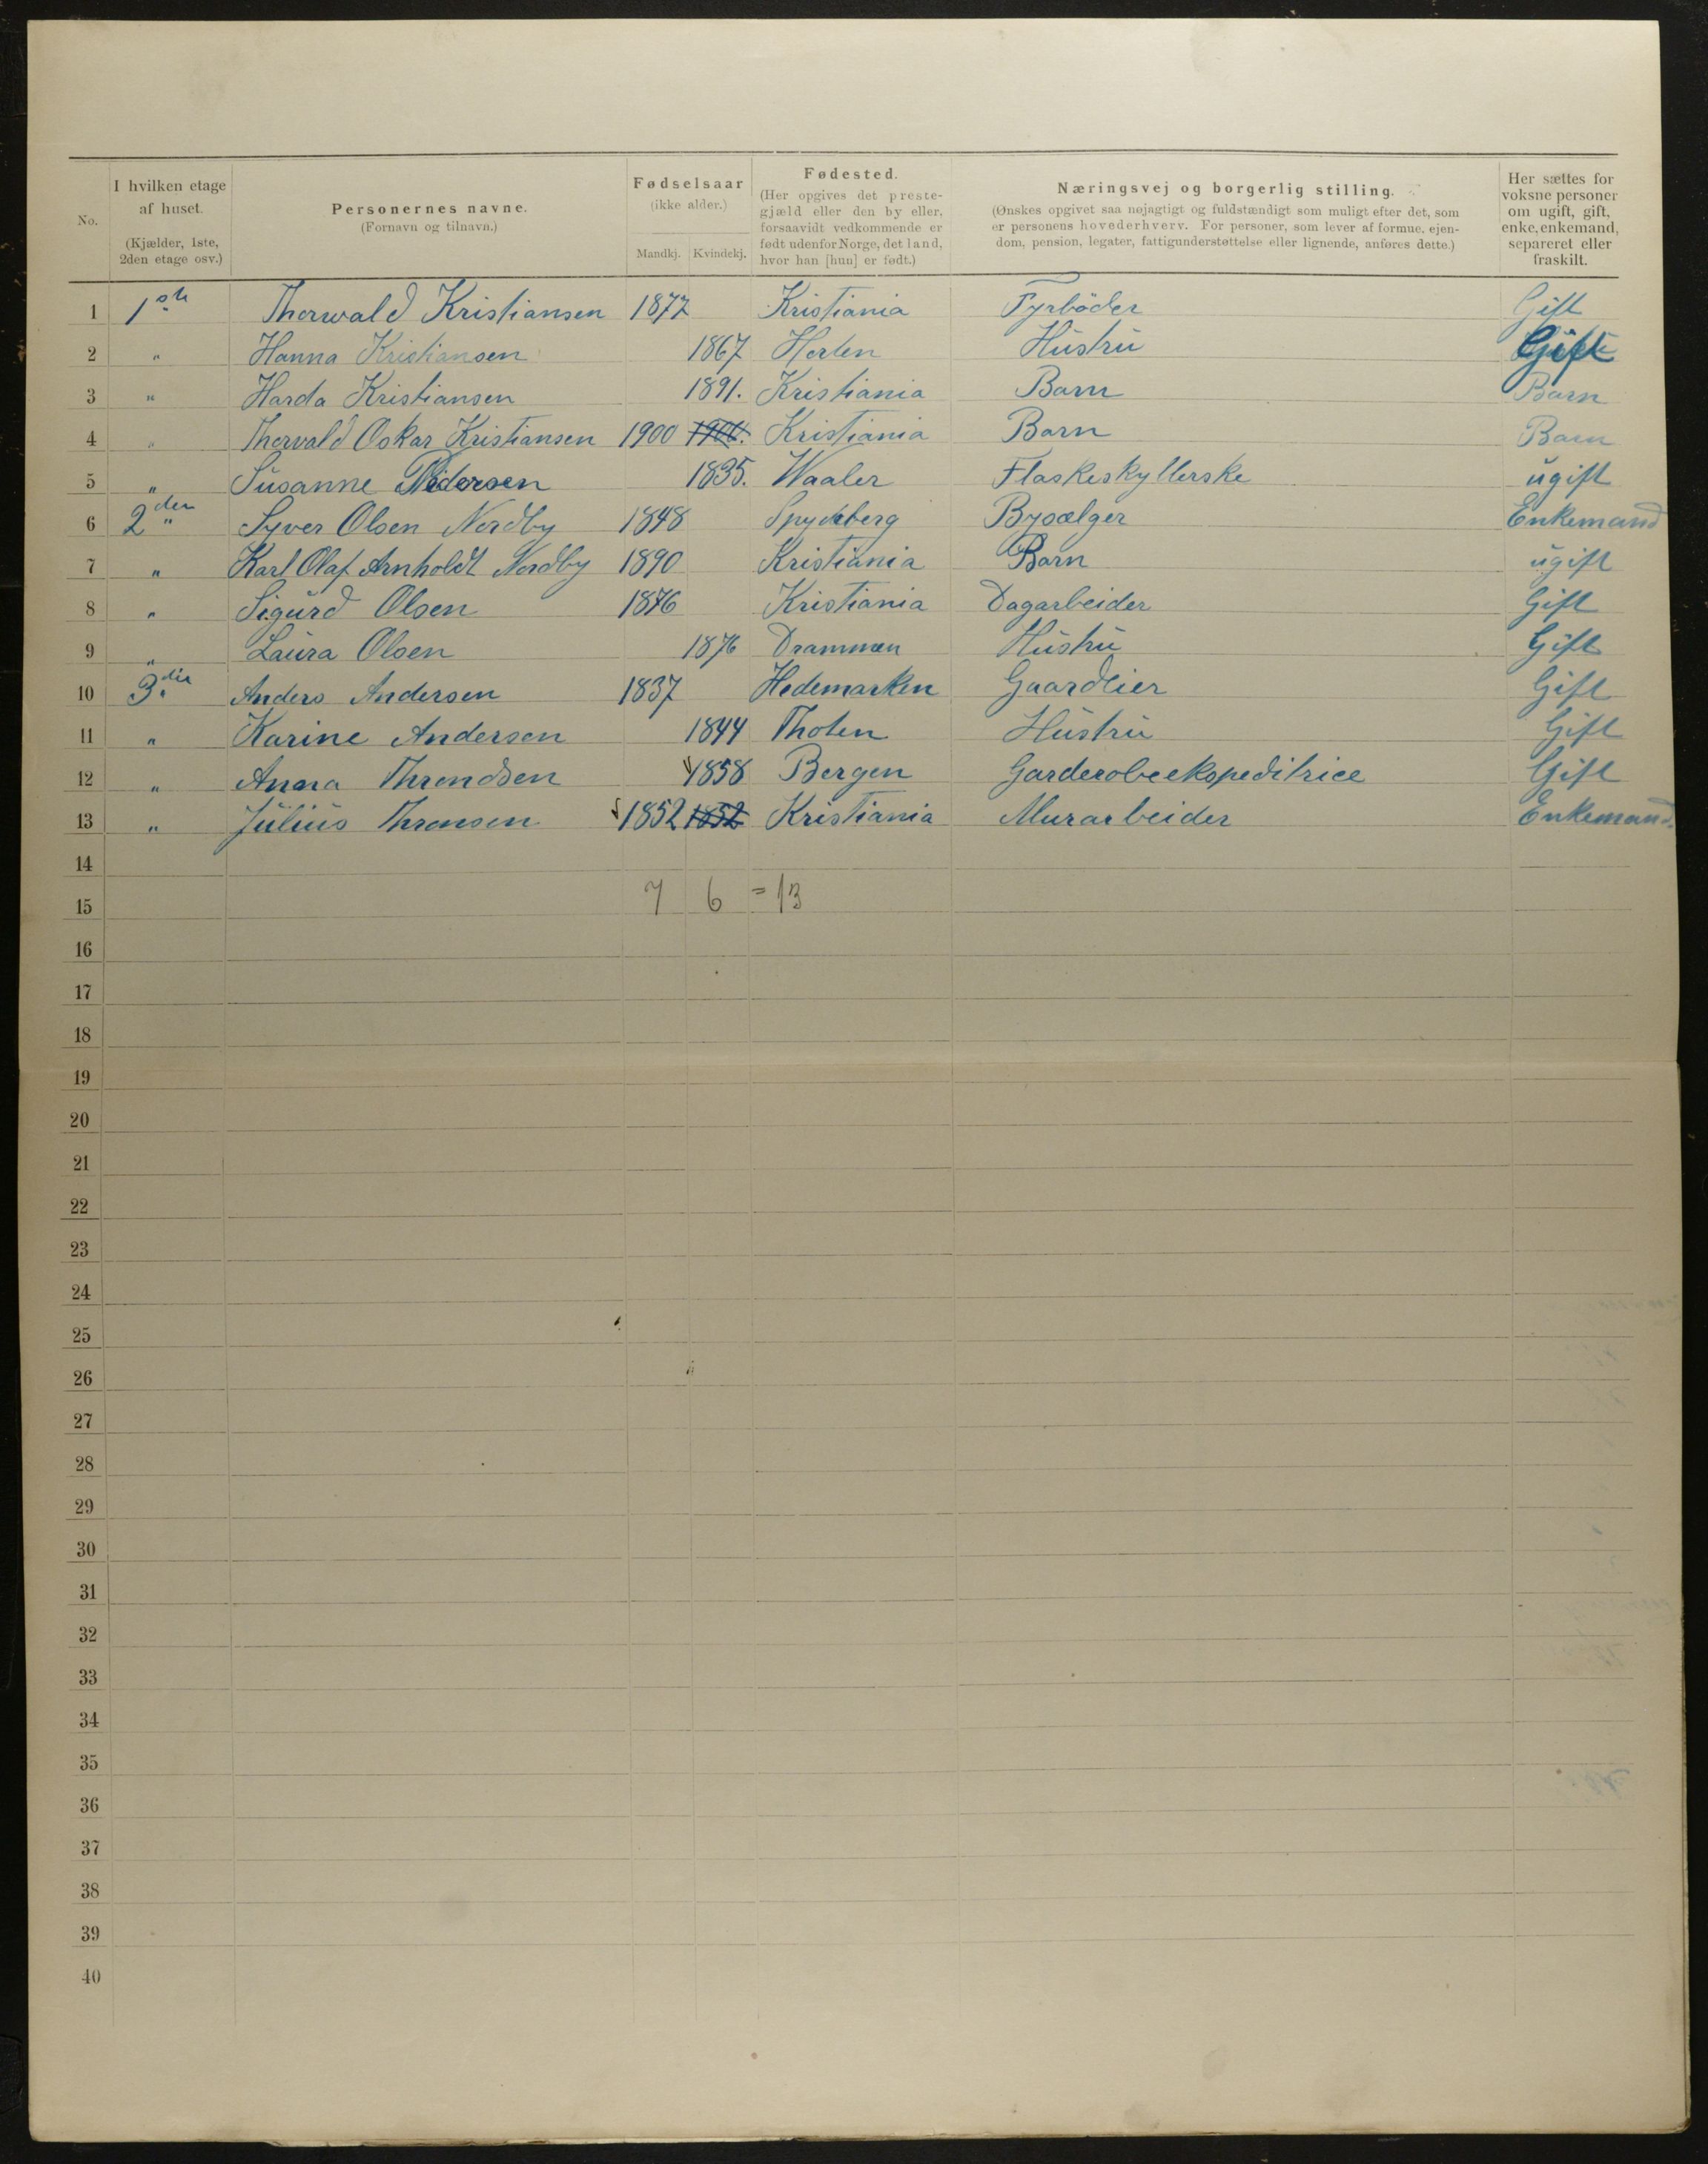 No.
I hvilken etage af huset.
(Kjælder, 1ste, 2den etage osv.)
Personernes navne.
(Fornavn og tilnavn.)
Fødselsaar
(ikke alder.)
Mandkj. Kvindekj.
Fødested.
(Her opgives det prestegjæld eller den by eller, forsaavidt vedkommende er født udenfor Norge, det land, hvor han [hun] er født.)
Næringsvej og borgerlig stilling.
(Ønskes opgivet saa nøjagtigt og fuldstændigt som muligt efter det, som er personens hovederhverv. For personer, som lever af formue, ejendom, pension, legater, fattigunderstøttelse eller lignende, anføres dette.)
Her sættes for voksne personer om ugift, gift, enke, enkemand, separeret eller fraskilt.
1 1ste Thorwald Kristiansen 1877 Kristiania Fyrböder Gift
2 " Hanna Kristiansen 1867 Horten Hustru Gift
3 " Harda Kristiansen 1891. Kristiania Barn Barn
4 " Thorvald Oskar Kristiansen 1900 1900. Kristiania Barn Barn
5 " Susanne Pedersen 1835. Waaler Flaskeskyllerske ugift
6 2den " Syver Olsen Nordby 1848 Spydeberg Bysælger Enkemand
7 " Karl Olaf Arnholdt Nordby 1890 Kristiania Barn ugift
8 " Sigurd Olsen 1876 Kristiania Dagarbeider Gift
9 " Laura Olsen 1876 Drammen Hustru Gift
10 3die " Anders Andersen 1837 Hedemarken Gaardeier Gift
11 " Karine Andersen 1844 Thoten Hustru Gift
12 " Anna Throndsen 1858 Bergen Garderobeekspeditrice Gift
13 " Julius Thronsen 1852 1852 Kristiania Murarbeider Enkemand.
14
15 7 6 = 13
16
17
18
19
20
21
22
23
24
25
26
27
28
29
30
31
32
33
34
35
36
37
38
39
40